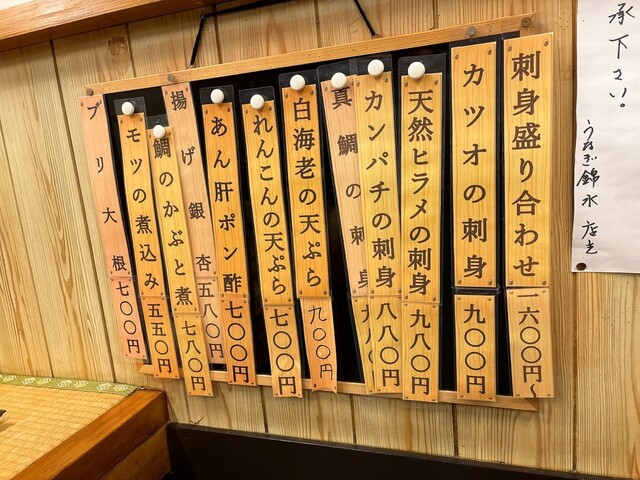 承下さい。
うなぎ錦水 店主
刺身盛り合わせ 一六〇〇円〜
カツオの刺身 九〇〇円
天然ヒラメの刺身 九八〇円
カンパチの刺身 八八〇円
真鯛の刺身 九八
白海老の天ぷら 九〇〇円
れんこんの天ぷら 七〇〇円
あん肝ポン酢 七〇〇円
揚げ銀杏 五八〇円
鯛のかぶと煮 七八〇円
モツの煮込み 五五〇円
ブリ大根 七〇〇円